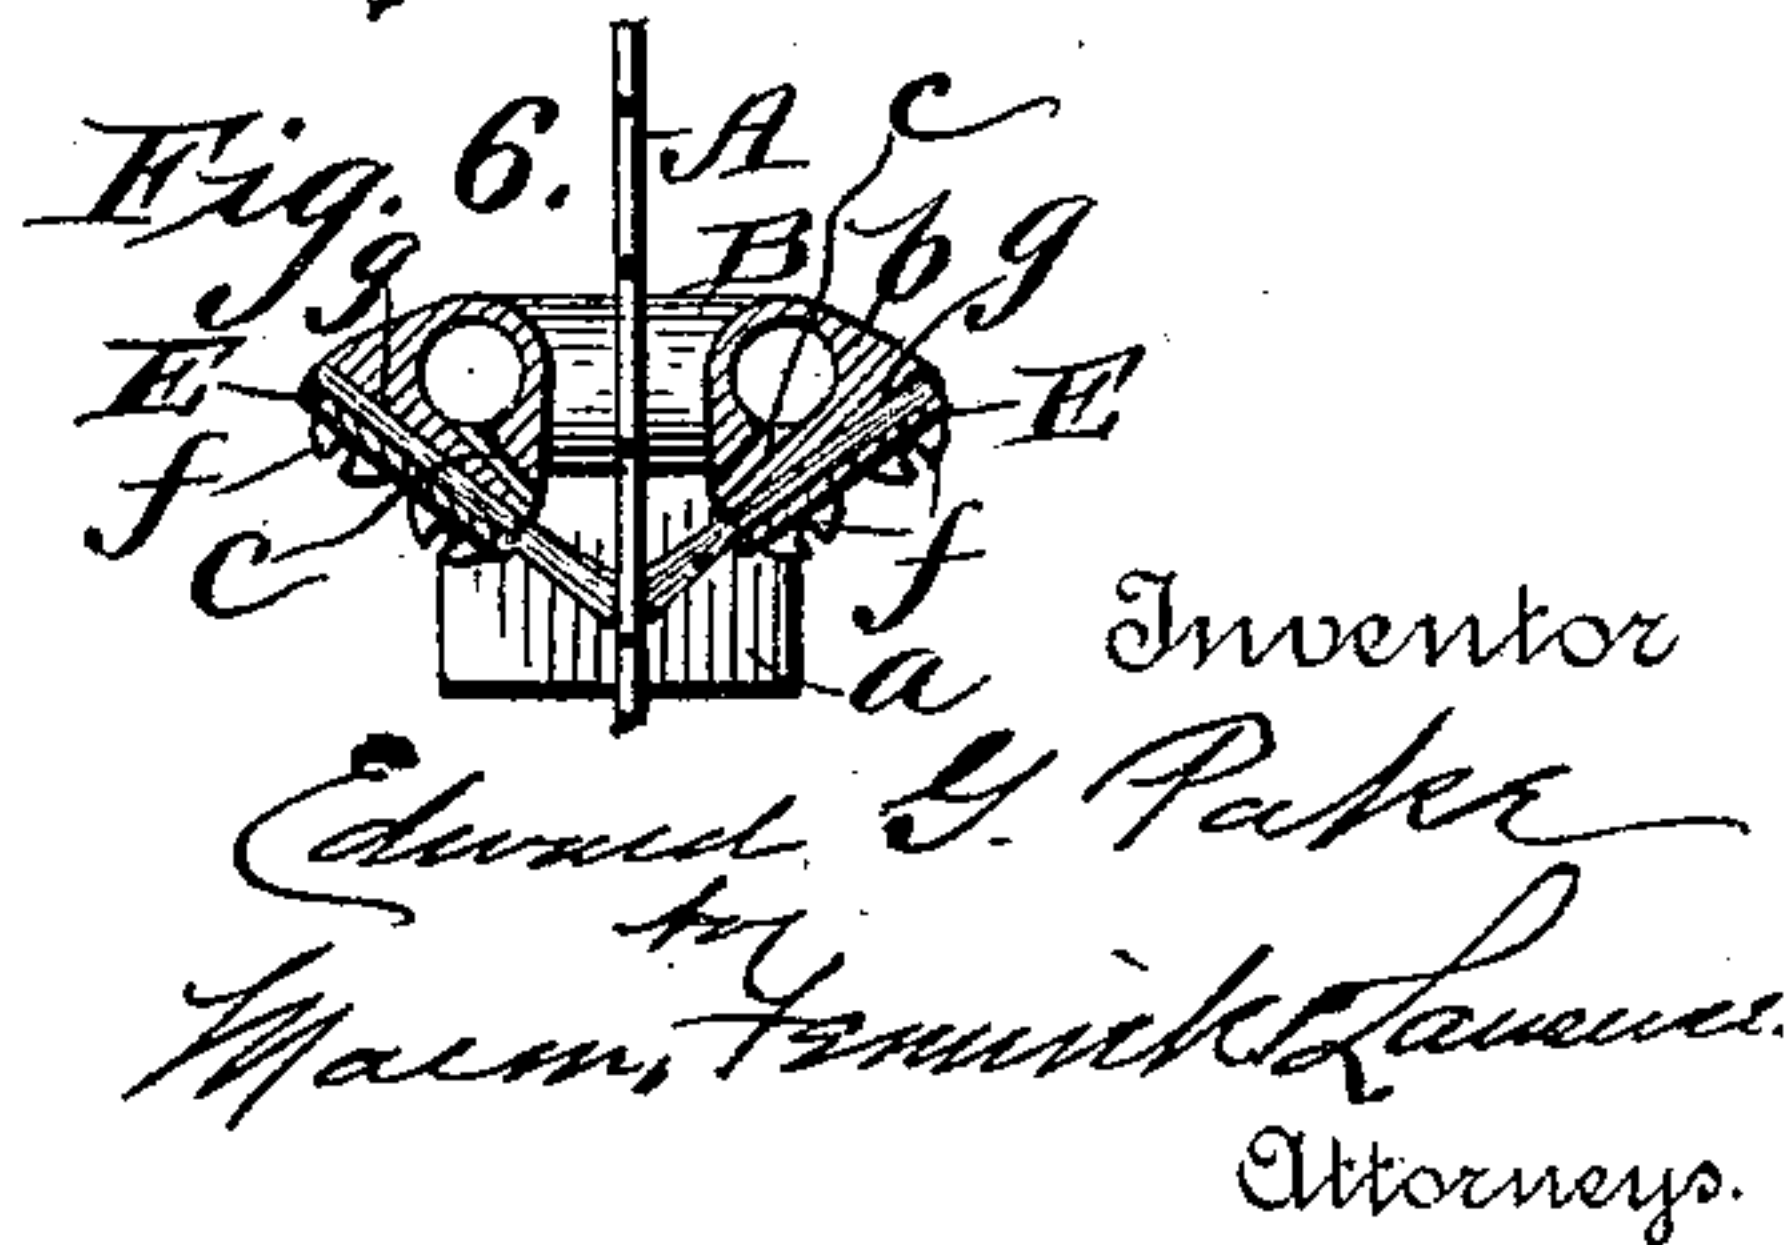 Fig. 6.
A
c
B
b
g
g
E
E
f
C
f
a
Inventor
Edward G.
by
Mason, Fenwick & Lawrence.
Attorneys.